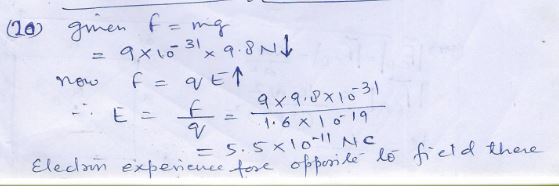 (20) given f = mg
= 9×10^-31 × 9.8 N↓
now f = qE↑
∴ E = f/q = 9×9.8×10^-31/1.6×10^-19
= 5.5×10^-11 NC
Electron experience force opposite to field there